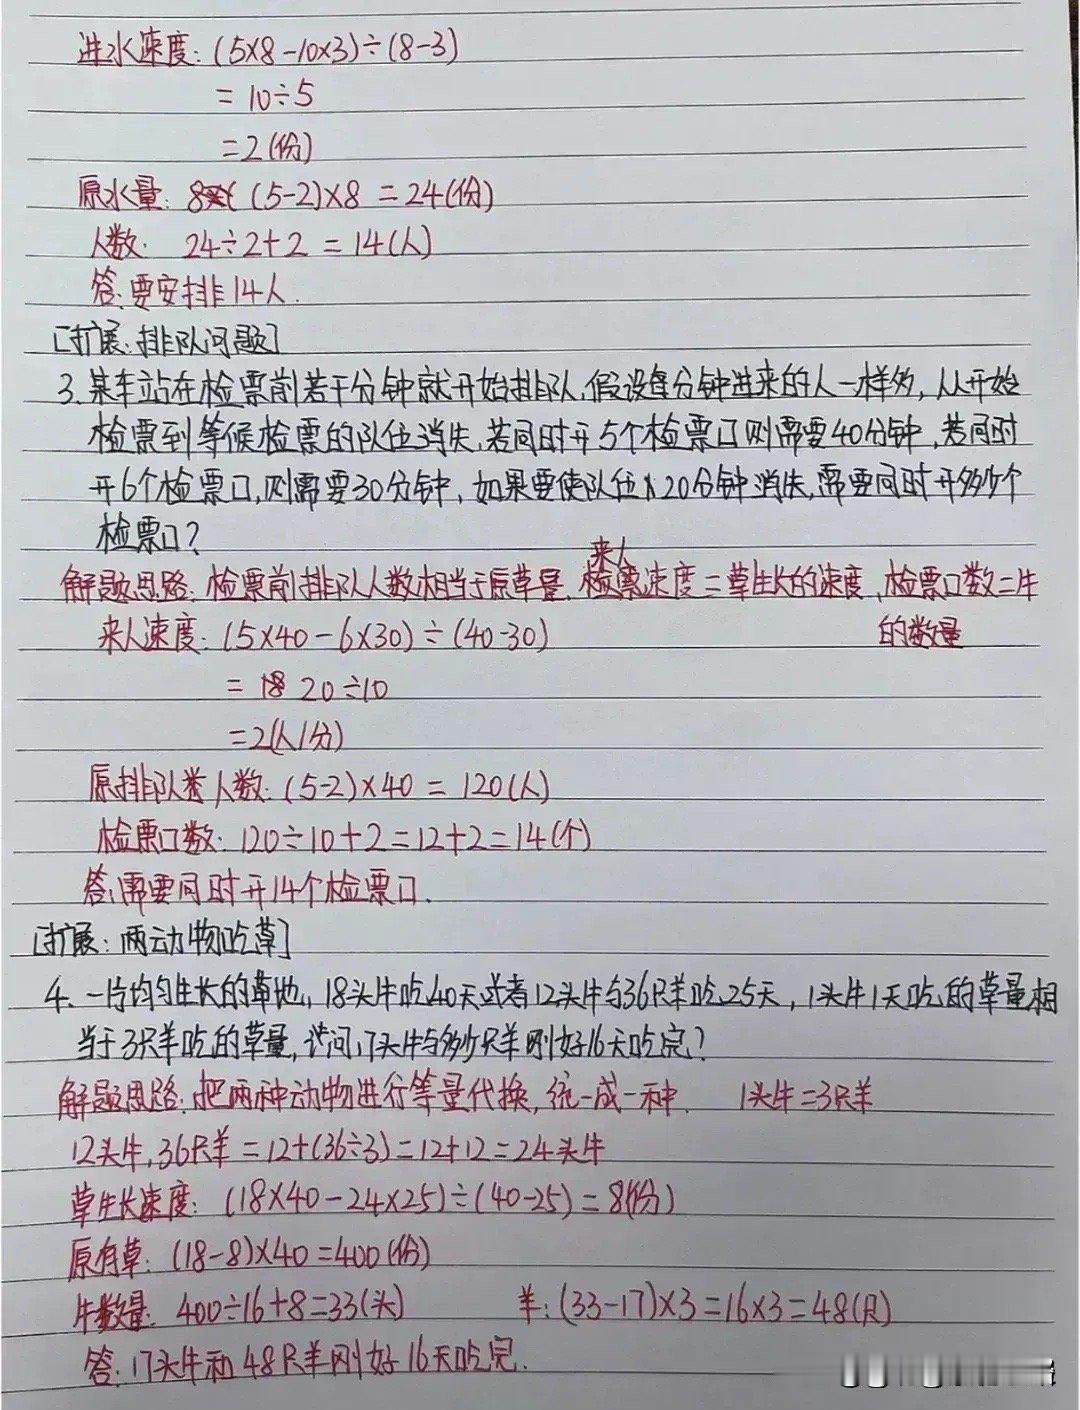 进水速度：(5×8-10×3)÷(8-3)
=10÷5
=2(份)
原水量：(5-2)×8=24(份)
人数：24÷2+2=14(人)
答：要安排14人.
[扩展：排队问题]
3.某车站在检票前若干分钟就开始排队,假设每分钟进来的人一样多,从开始
检票到等候检票的队伍消失,若同时开5个检票口则需要40分钟,若同时
开6个检票口,则需要30分钟,如果要使队伍20分钟消失,需要同时开多少个
检票口?
解题思路：检票前排队人数相当于原草量,来人速度=草生长的速度,检票口数=牛
的数量
来人速度：(5×40-6×30)÷(40-30)
=20÷10
=2(人/分)
原排队人数：(5-2)×40=120(人)
检票口数：120÷10+2=12+2=14(个)
答：需要同时开14个检票口.
[扩展：两动物吃草]
4.一片均匀生长的草地,18头牛吃40天或者12头牛与36只羊吃25天,1头牛1天吃的草量相
当于3只羊吃的草量,请问17头牛与多少只羊刚好16天吃完?
解题思路：把两种动物进行等量代换,统一成一种. 1头牛=3只羊
12头牛,36只羊=12+(36÷3)=12+12=24头牛
草生长速度：(18×40-24×25)÷(40-25)=8(份)
原有草：(18-8)×40=400(份)
牛数量：400÷16+8=33(头) 羊：(33-17)×3=16×3=48(只)
答：17头牛和48只羊刚好16天吃完.